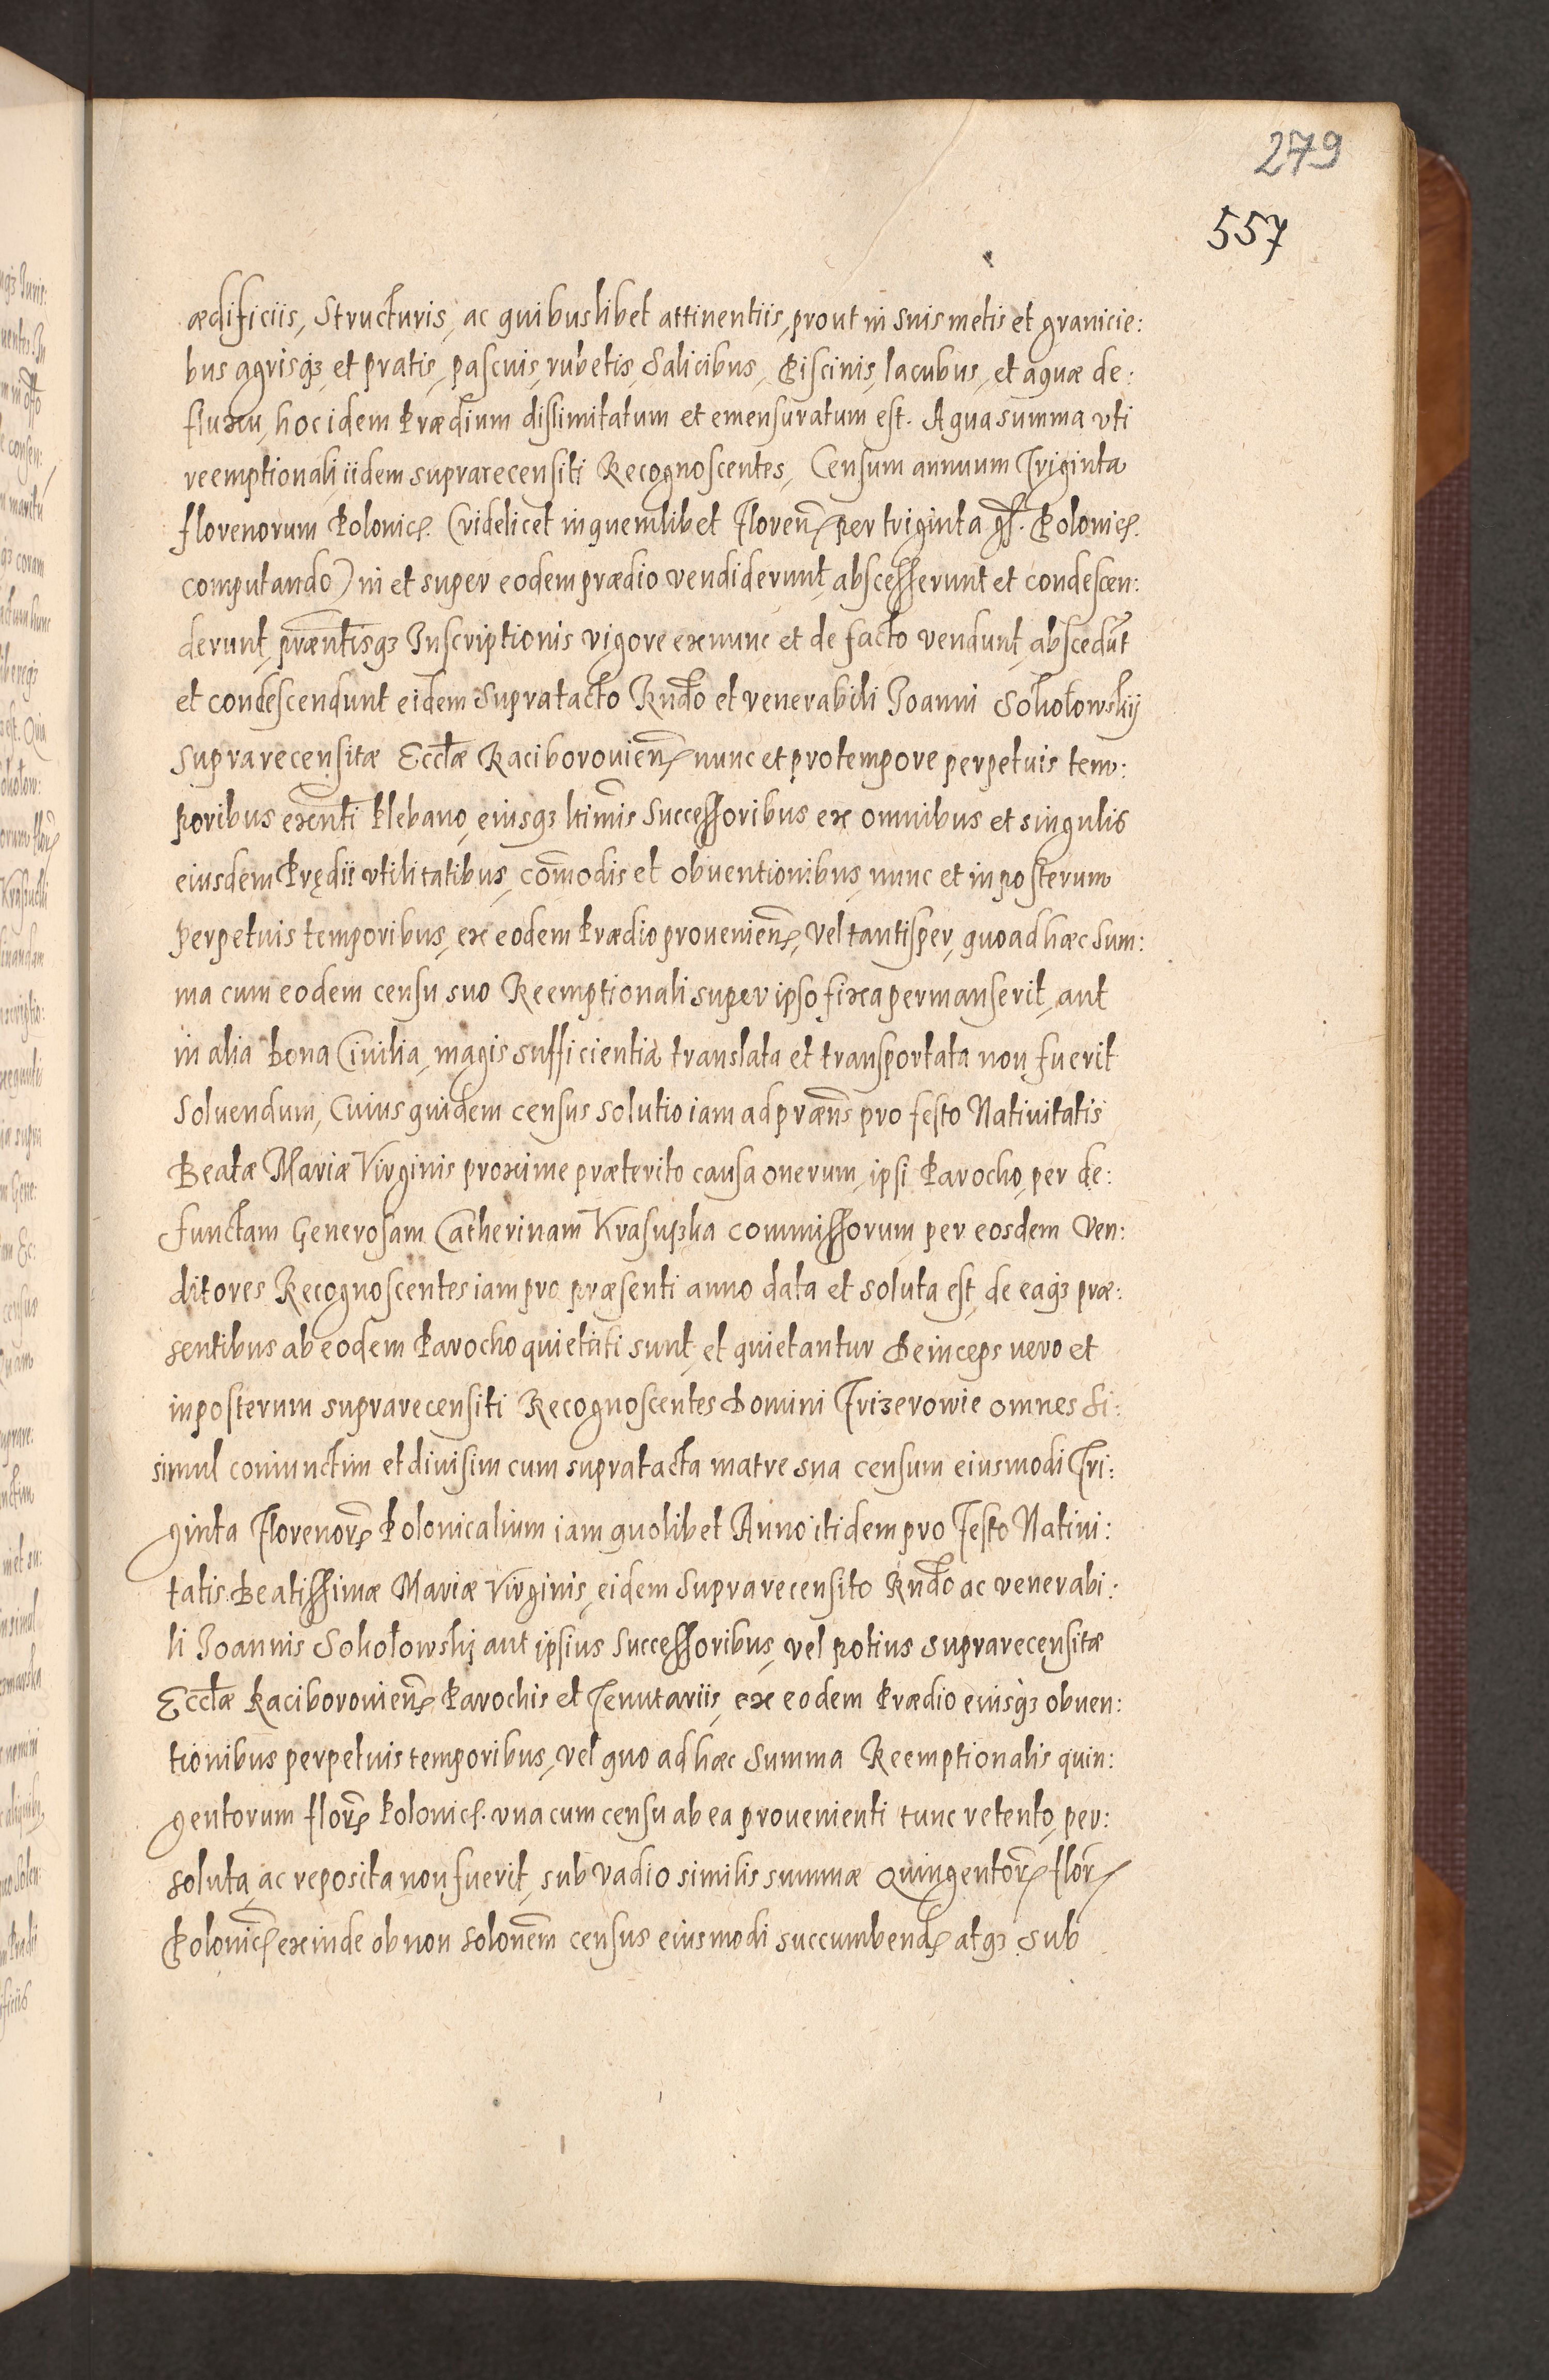 279
557
ædificiis, Structuris, ac quibuslibet attinentiis, prout in suis metis et granicie:
bus agrisqꝫ et pratis, pascuis, rubetis, Salicibus, Piscinis, lacubus, et aquæ de:
fluxu, hoc idem Prædium dislimitatum et emensuratum est. A qua summa vti
reemptionali iidem suprarecensiti Recognoscentes, Censum annuum Triginta
florenorum Polonic. (videlicet in quemlibet Floreñ per triginta gs. Polonic.
computando) in et super eodem prædio vendiderunt, abscesserunt et condescen:
derunt, præntisqꝫ Inscriptionis vigore ex nunc et de facto vendunt, abscedũt
et condescendunt eidem Supratacto Rndo et venerabili Joanni Sokołowskij
suprarecensitæ Ecclæ Raciborovieñ nunc et pro tempore perpetuis tem:
poribus exenti Plebano, eiusqꝫ ltimis Successoribus ex omnibus et singulis
eiusdem Prędii vtilitatibus, com̄odis et obventionibus, nunc et inposterum
perpetuis temporibus, ex eodem Prædio provenieñ, vel tantisper, quoad hæc Sum:
ma cum eodem censu suo Reemptionali super ipso fixa permanserit, aut
in alia bona Civilia, magis sufficientia translata et transportata non fuerit
Solvendum, Cuius quidem census solutio iam ad præns pro festo Nativitatis
Beatæ Mariæ Virginis proxime præterito causa onerum, ipsi Parocho, per de:
functam Generosam Catherinam Krasupska commissorum per eosdem Ven:
ditores Recognoscentes iam pro præsenti anno data et soluta est, de eaqꝫ præ:
sentibus ab eodem Parocho quietati sunt, et quietantur Deinceps vero et
inposterum suprarecensiti Recognoscentes Domini Frizerowie omnes Si:
simul coniunctim et divisim cum supratacta matre sua censum eiusmodi Tri:
ginta Florenor̃ Polonicalium iam quolibet Anno itidem pro Festo Nativi:
tatis Beatissimæ Mariæ Virginis, eidem Suprarecensito Rndo ac venerabi:
li Joannis Sokołowskj aut ipsius Successoribus, vel potius suprarecensitæ
Ecclæ Raciborovieñ Parochis et Tenutariis, ex eodem Prædio eiusqꝫ obven:
tionibus perpetuis temporibus, vel quo ad hæc Summa Reemptionalis quin:
gentorum flor̃ Polonic. vna cum censu ab ea provenienti tunc retento, per:
soluta, ac reposita non fuerit, sub vadio similis summæ Quingentor̃ flor̃
Polonic̃ exinde ob non solonem census eiusmodi succumbend atqꝫ sub